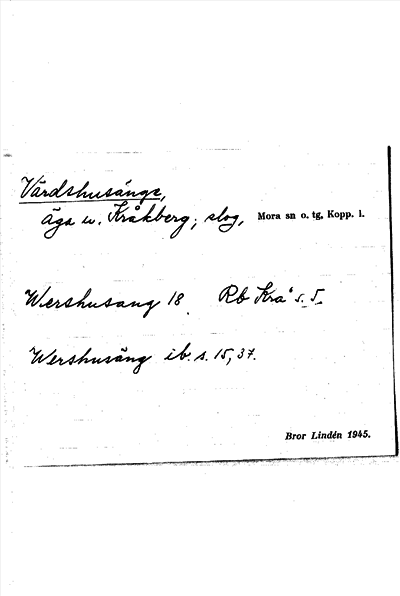 Värdshusänge,
äga u. Kråkberg; slog, Mora sn o. tg, Kopp. l.
Wershusang 18 Rb Krå s. 5
Wershusäng ib. s. 15, 37.
Bror Lindén 1945.